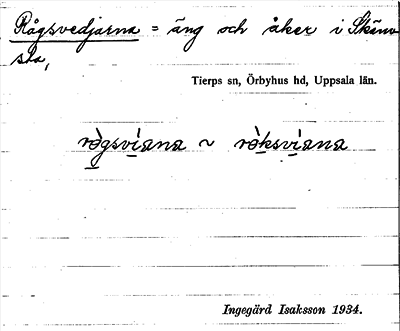 Rågsvedjarna = äng och åker i Skäm-
sta,
Tierps sn, Örbyhus hd, Uppsala län.
rògsvìana ~ ròksvìana
Ingegärd Isaksson 1934.